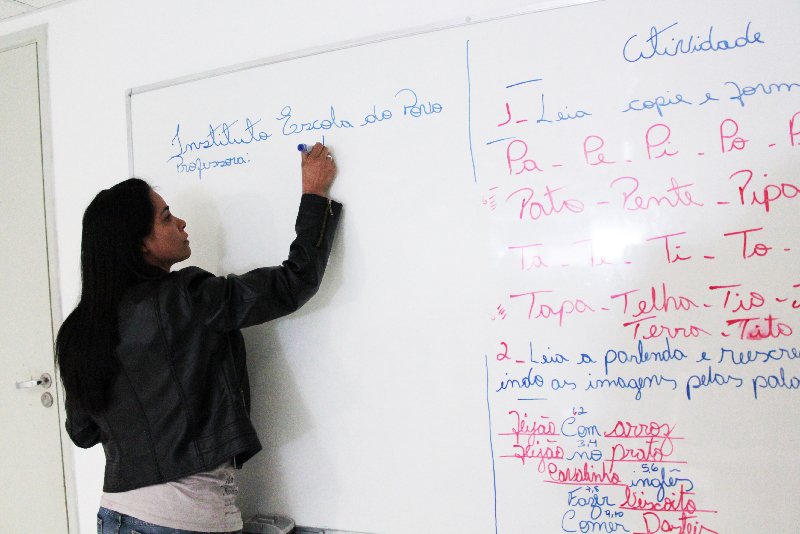 Instituto Escola do Povo
Professora:
Atividade
1- Leia copie e form
Pa - Pe - Pi - Po - P
Pato - Pente - Pipa
Ta - Te - Ti - To -
Tapa - Telha - Tio -
Terra - Tito
2 - Leia a parlenda e reescre
indo as imagens pelas pala
1,2
Feijão Com arros
3,4
Feijão no prato
5,6
Cavalinho inglês
7,8
Fazer biscoito
9,10
Comer Pasteis